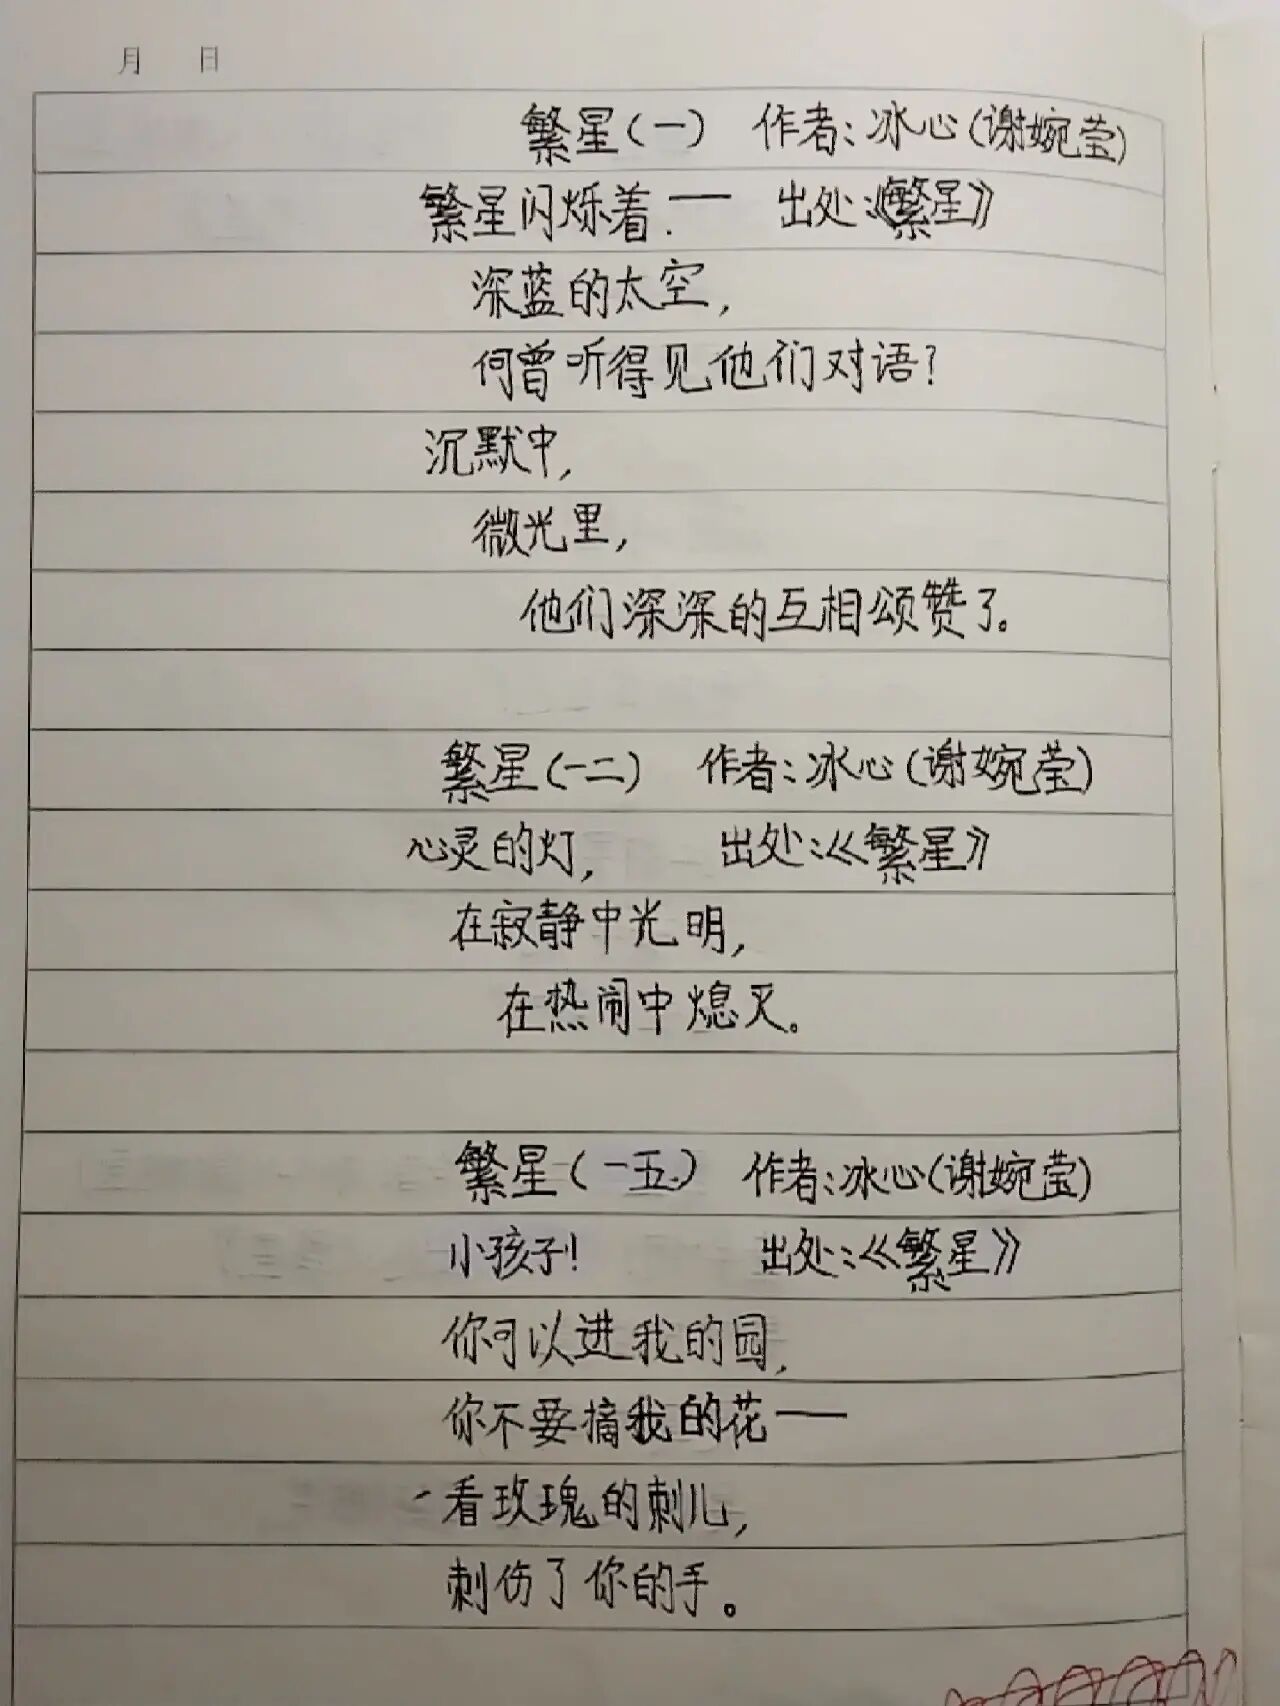 月 日
繁星(一) 作者:冰心(谢婉莹)
繁星闪烁着.—— 出处:《繁星》
深蓝的太空,
何曾听得见他们对语?
沉默中,
微光里,
他们深深的互相颂赞了。
繁星(一二) 作者:冰心(谢婉莹)
心灵的灯, 出处:《繁星》
在寂静中光明,
在热闹中熄灭。
繁星(一五.) 作者:冰心(谢婉莹)
小孩子! 出处:《繁星》
你可以进我的园,
你不要摘我的花——
看玫瑰的刺儿,
刺伤了你的手。